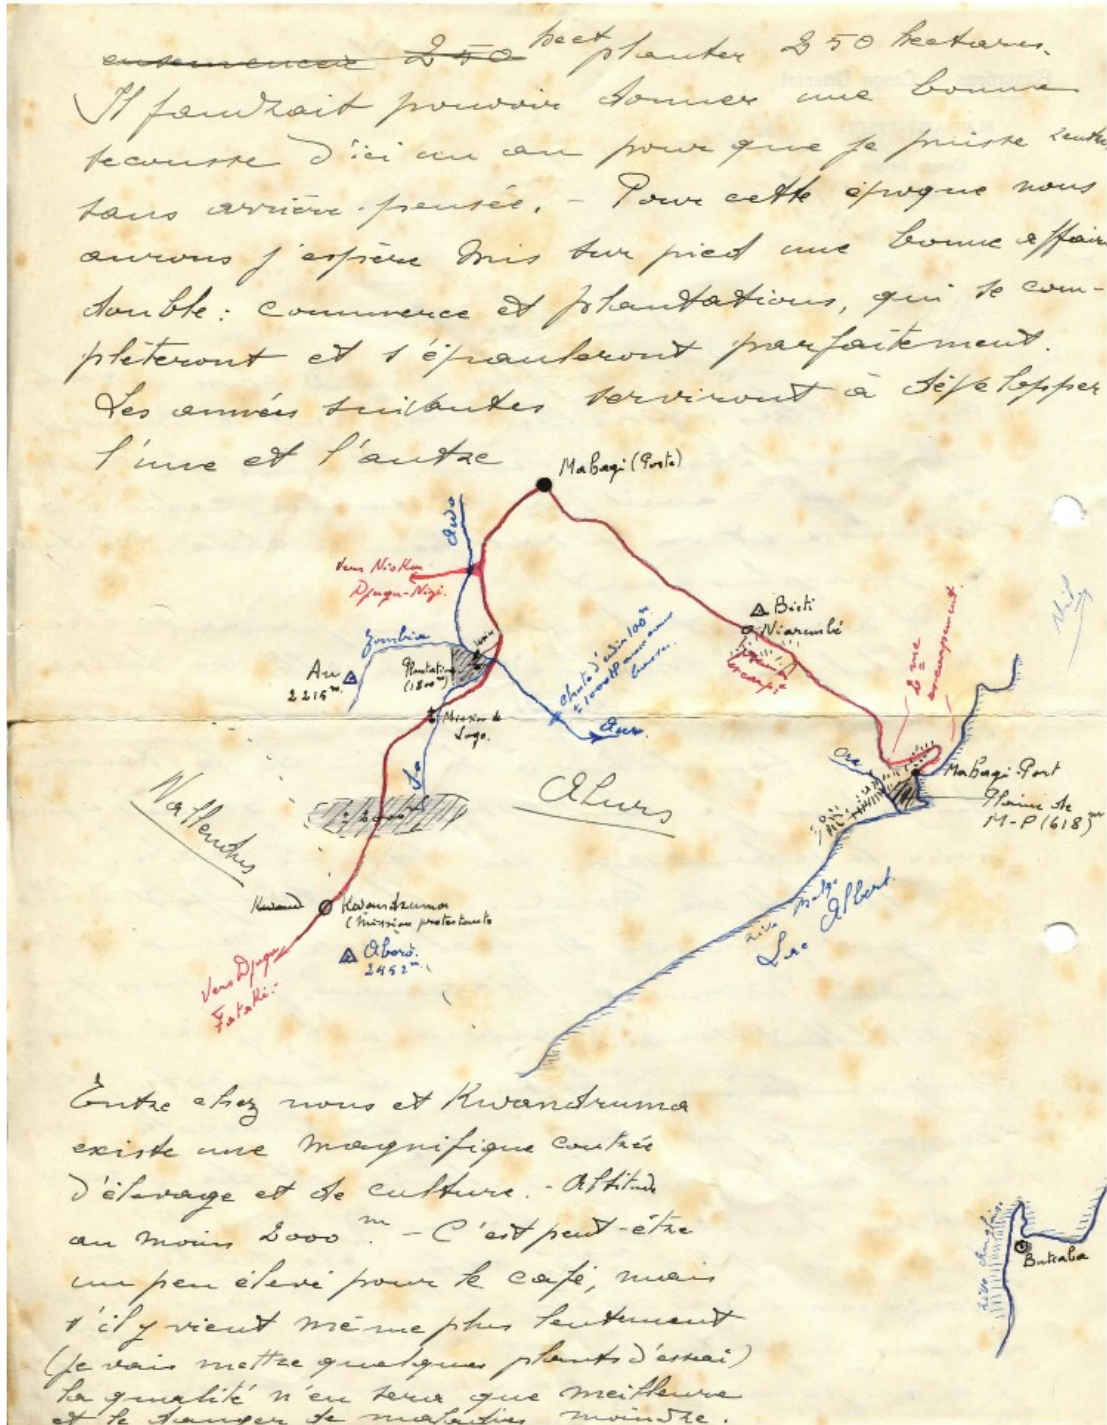 ensemencer 250 hect planter 250 hectares.
Il faudrait pouvoir donner une bonne
secousse d'ici un an pour que je puisse rentrer
sans arrière-pensée. - Pour cette époque nous
aurons j'espère mis sur pied une bonne affaire
double: commerce et plantations, qui se com-
plèteront et s'épauleront parfaitement.
Les années suivantes serviront à développer
l'une et l'autre
Mahagi (Poste)
Awo
Vers Nioka
Djugu-Nizi.
Zombia
Au
2215 m.
Plantation
(1800 m)
Mission de
Logo.
Chute d'eau 100 m
± 1000 HP
Awo.
Bisti
Niarembé
escarpt
2me
escarpement.
Nil
Mahagi-Port
Plaine de
M-P (618) m
Walendus
Alurs
± 2000 m
Kwand
Kwandruma
(Mission protestante
Aboro.
2452 m.
Vers Djugu
Fataki.
rive belge
Lac Albert.
Entre chez nous et Kwandruma
existe une magnifique contrée
d'élevage et de culture. - Altitude
au moins 2000 m. - C'est peut-être
un peu élevé pour le café, mais
s'il y vient même plus lentement
(je vais mettre quelques plants d'essai)
la qualité n'en sera que meilleure
et le danger de maladies moindre.
rive anglaise
Butiaba